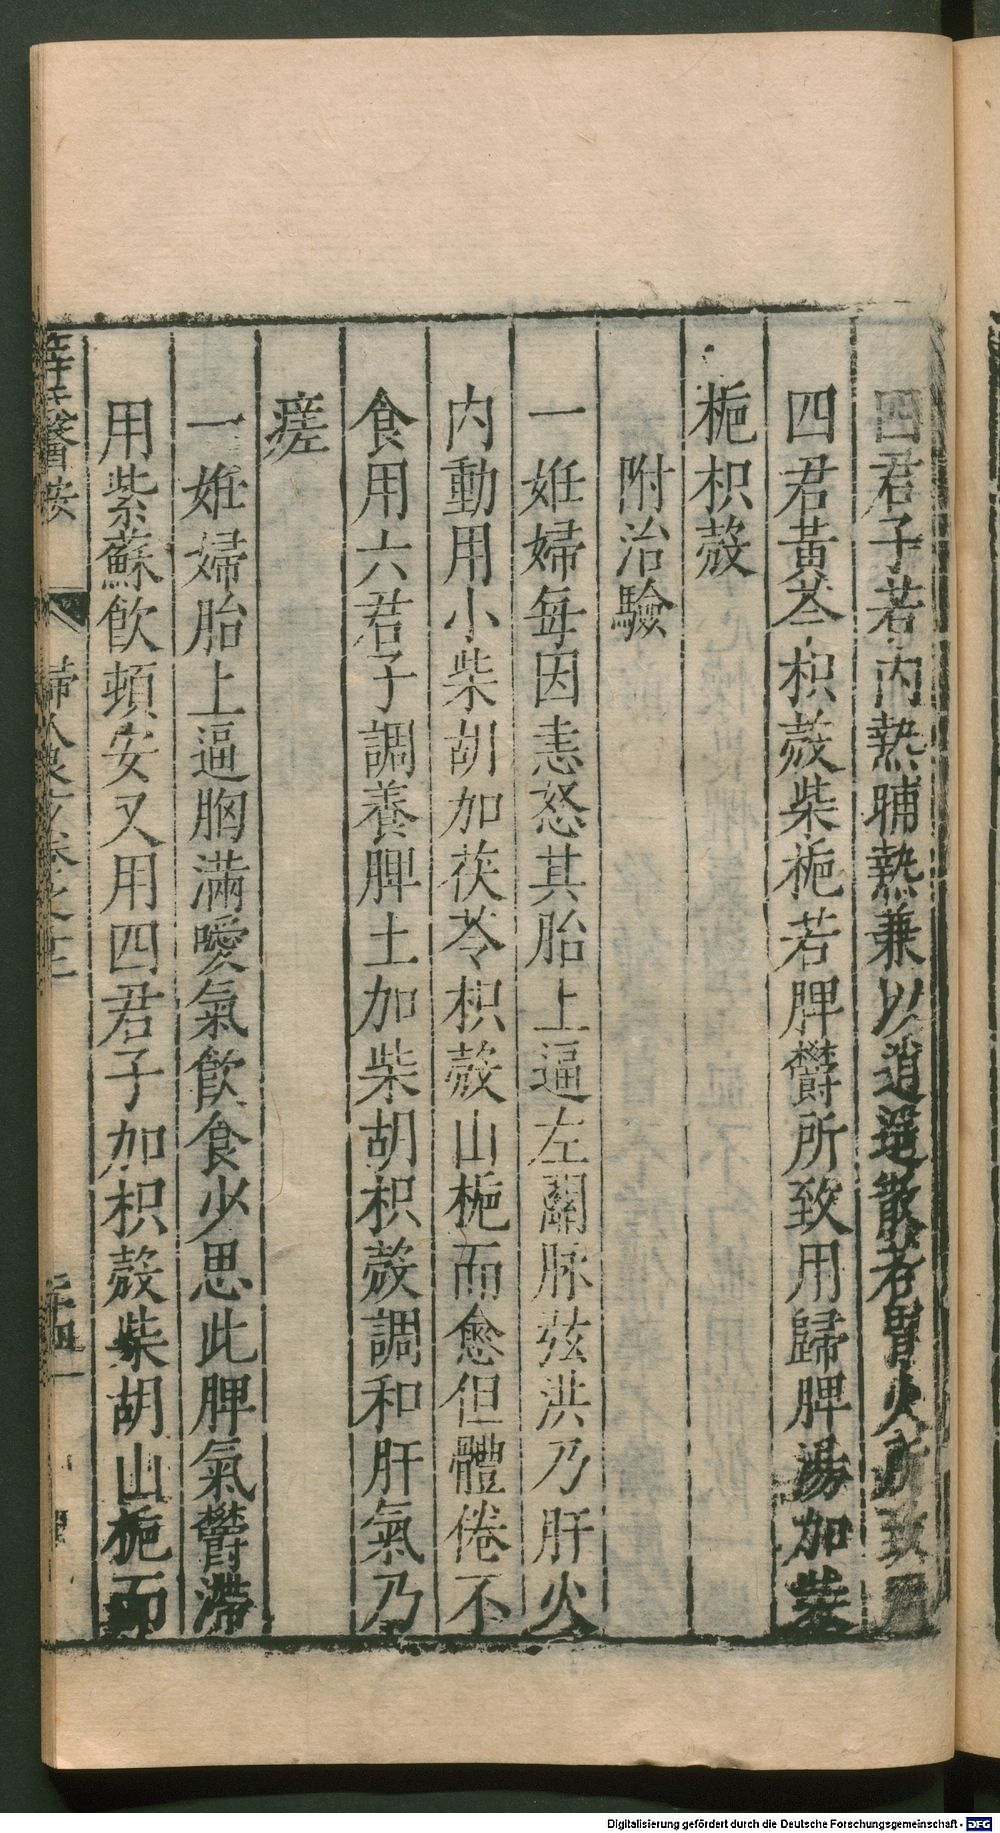 四君子若内熱晡熱兼以逍遥散若胃火所致用
四君黃芩枳殼柴梔若脾鬱所致用歸脾湯加柴
梔枳殼
附治驗
一姙婦每因恚怒其胎上逼左關脉弦洪乃肝火
内動用小柴胡加茯苓枳殼山梔而愈但體倦不
食用六君子調養脾土加柴胡枳殼調和肝氣乃
瘥
一姙婦胎上逼胸滿噯氣飲食少思此脾氣鬱滯
用紫蘇飲頓安又用四君子加枳殼柴胡山梔而
薛氏醫按 婦人良方卷之十二
Digitalisierung gefördert durch die Deutsche Forschungsgemeinschaft - DFG